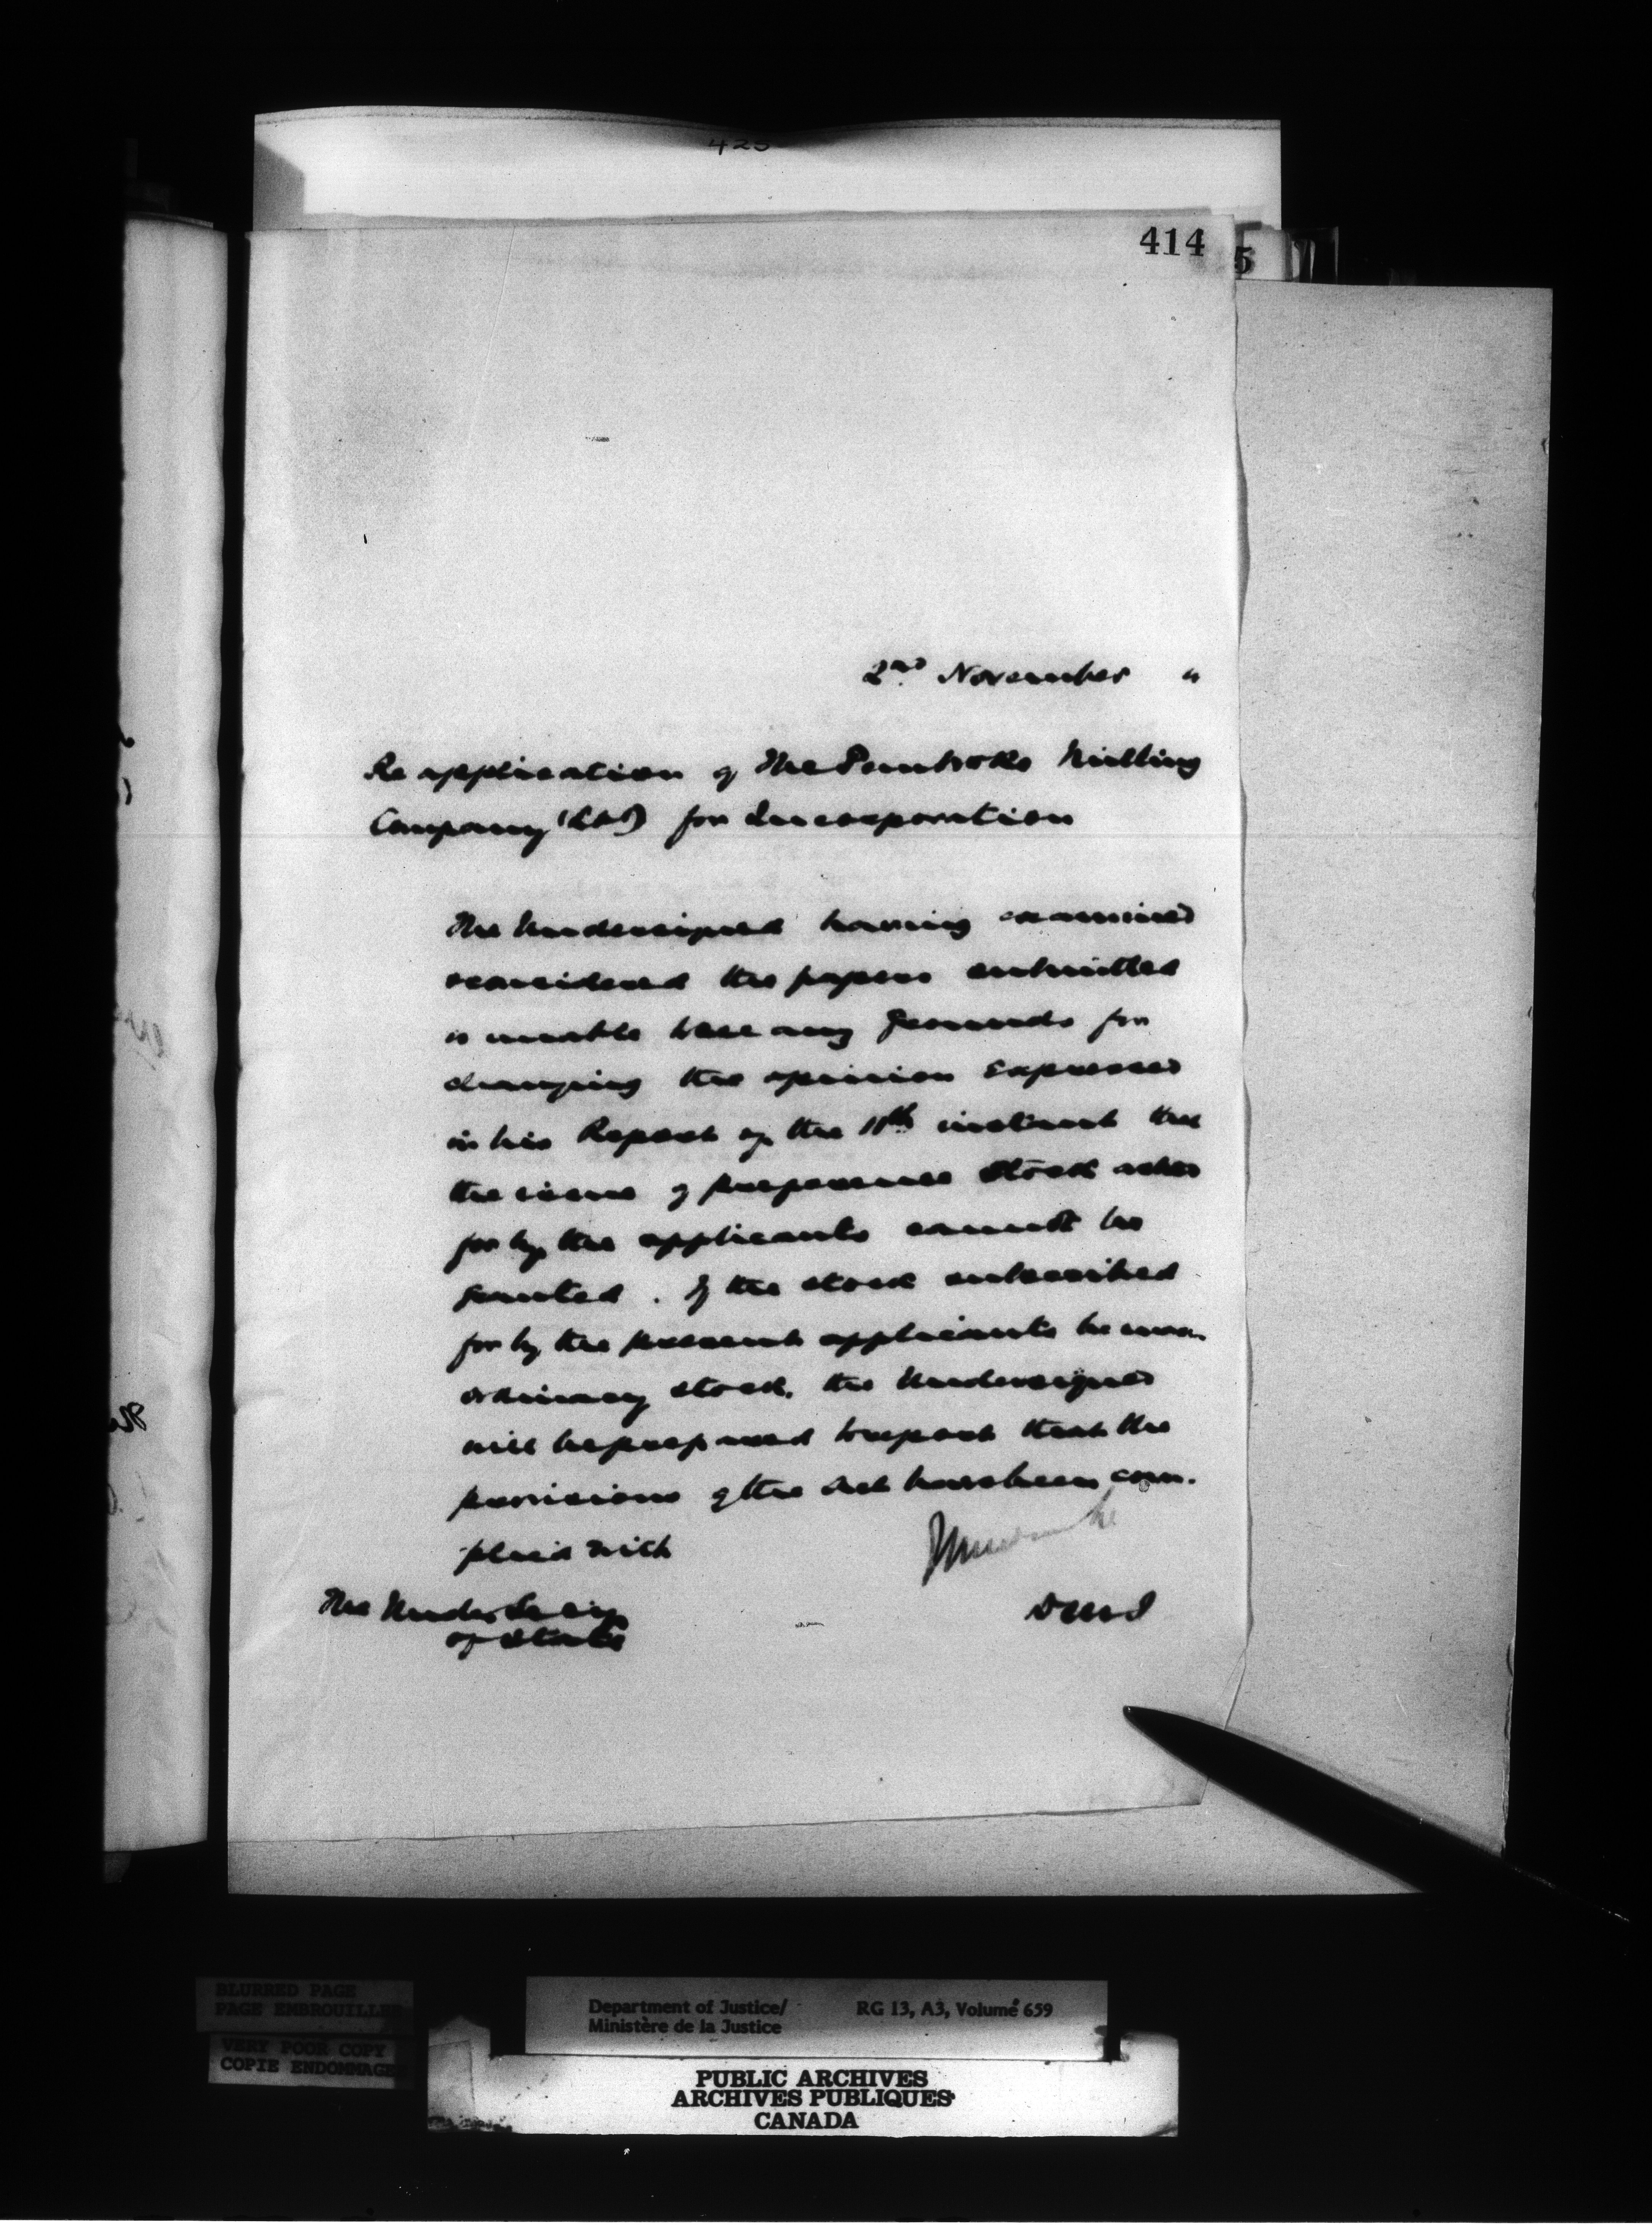 423
414
5
2nd November "
Re application of The Pembroke Milling
Company (Ltd) for Incorporation
The Undersigned having examined
& considered the papers submitted
is unable to see any grounds for
changing the opinion expressed
in his Report of the 11th instant that
the issue of preference stock asked
for by the applicants cannot be
granted. If the stock subscribed
for by the present applicants be
ordinary stock, the Undersigned
will be prepared to report that the
provisions of the Act have been com-
plied with
The Under Secy
of State
D M J
BLURRED PAGE
PAGE EMBROUILLEE
VERY POOR COPY
COPIE ENDOMMAGE
Department of Justice/ RG 13, A3, Volume 659
Ministère de la Justice
PUBLIC ARCHIVES
ARCHIVES PUBLIQUES
CANADA